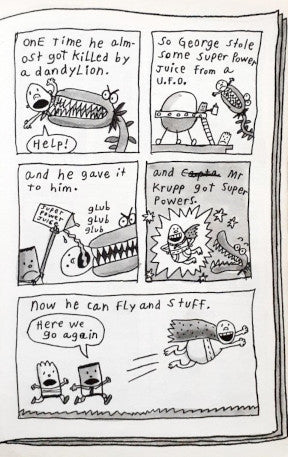 one Time he alm-
ost got killed by
a dandyLion.
Help!
So George stole
some super Power
Juice from a
U.F.O.
and he gave it
to him.
super
power
juice
glub
glub
glub
and Mr
Krupp got super
Powers.
now he can fly and stuff.
Here we
go again